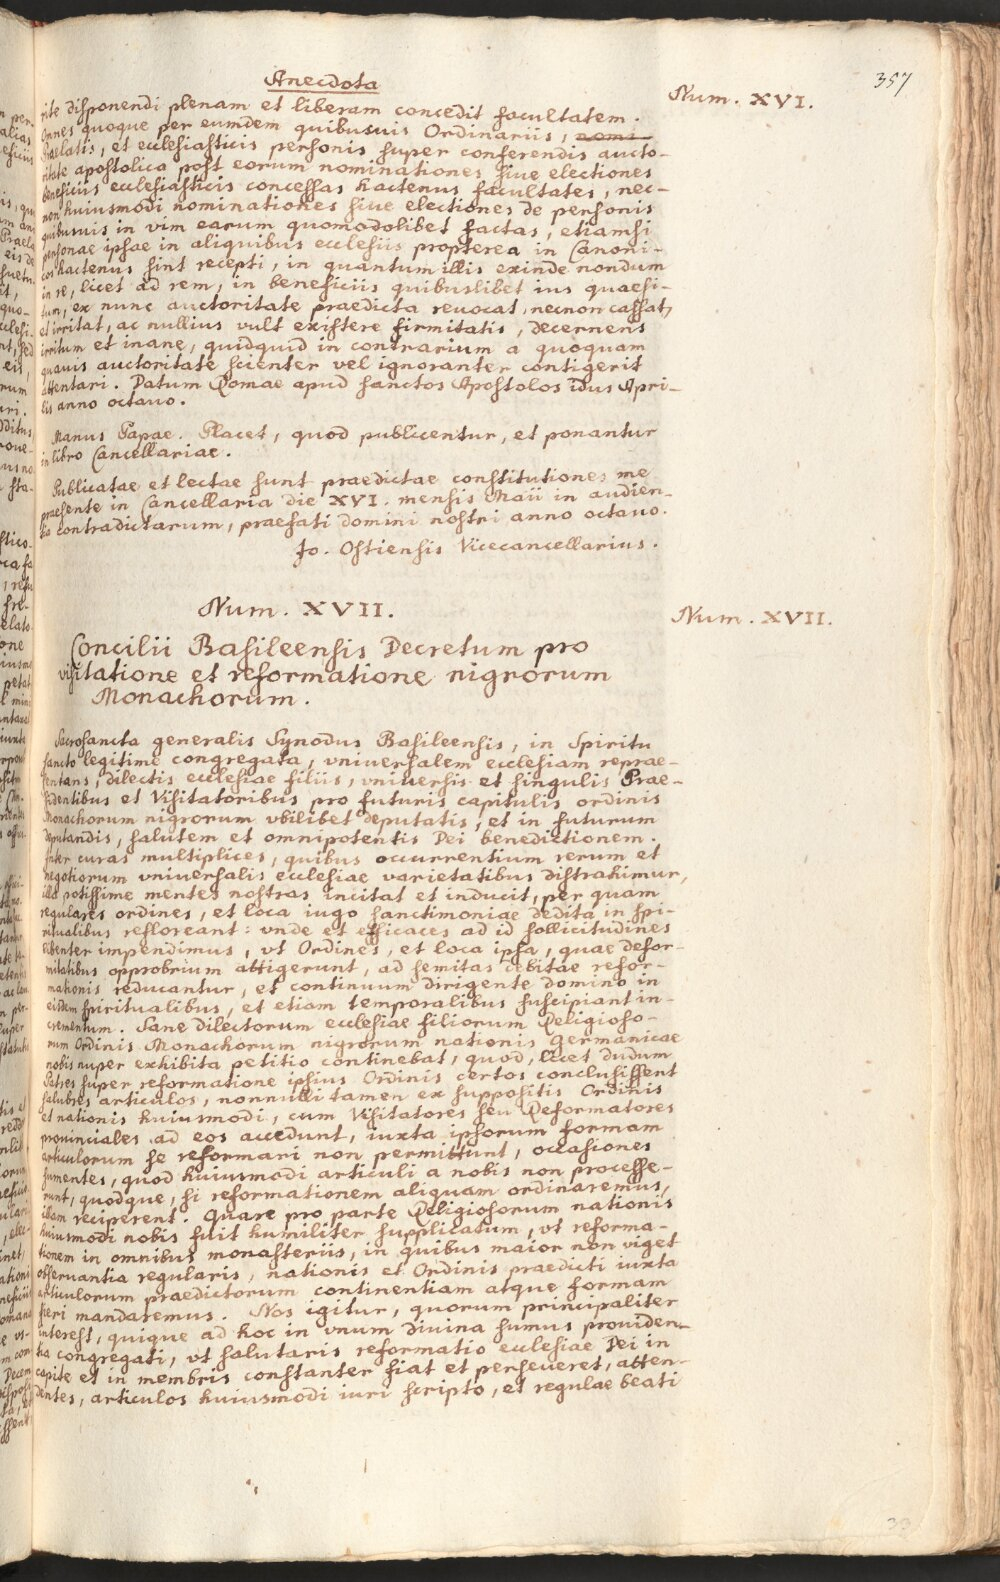 357
Anecdota
Num. XVI.
rite disponendi plenam et liberam concedit facultatem.
Omnes quoque per eumdem quibusuis Ordinariis, nomi-
Praelatis, et ecclesiasticis personis super conferendis aucto-
ritate apostolica post eorum nominationes siue electiones
beneficiis ecclesiasticis concessas hactenus facultates, nec-
non huiusmodi nominationes siue electiones de personis
quibusuis in vim earum quomodolibet factas, etiamsi
personae ipsae in aliquibus ecclesiis propterea in Canoni-
cos hactenus sint recepti, in quantum illis exinde nondum
in re, licet ad rem, in beneficiis quibuslibet ius quaesi-
tum, ex nunc auctoritate praedicta reuocat, necnon cassat,
et irritat, ac nullius vult existere firmitatis, decernens
irritum et inane, quidquid in contrarium a quoquam
quauis auctoritate scienter vel ignoranter contigerit
attentari. Datum Romae apud sanctos Apostolos idus Apri-
lis anno octauo.
Manus Papae. Placet, quod publicentur, et ponantur
in libro Cancellariae.
Publicatae et lectae sunt praedictae constitutiones me
praesente in Cancellaria die XVI. mensis Maii in audien-
tia contradictarum, praefati domini nostri anno octauo.
Jo. Ostiensis Vicecancellarius.
Num. XVII.
Num. XVII.
Concilii Basileensis Decretum pro
visitatione et reformatione nigrorum
Monachorum.
Sacrosancta generalis Synodus Basileensis, in Spiritu
sancto legitime congregata, vniuersalem ecclesiam reprae-
sentans, dilectis ecclesiae filiis, vniuersis et singulis Prae-
sidentibus et Visitatoribus pro futuris capitulis ordinis
Monachorum nigrorum vbilibet deputatis, et in futurum
deputandis, salutem et omnipotentis Dei benedictionem.
Inter curas multiplices, quibus occurrentium rerum et
negotiorum vniuersalis ecclesiae varietatibus distrahimur,
illa potissime mentes nostras incitat et inducit, per quam
regulares ordines, et loca iugo sanctimoniae dedita in spi-
ritualibus refloreant: vnde et efficaces ad id sollicitudines
libenter impendimus, vt Ordines, et loca ipsa, quae defor-
mitatibus opprobrium attigerunt, ad semitas debitae refor-
mationis reducantur, et continuum dirigente domino in
eisdem spiritualibus, et etiam temporalibus suscipiant in-
crementum. Sane dilectorum ecclesiae filiorum Religioso-
rum Ordinis Monachorum nigrorum nationis Germanicae
nobis nuper exhibita petitio continebat, quod, licet dudum
Patres super reformatione ipsius Ordinis certos conclusissent
salubres articulos, nonnulli tamen ex suppositis Ordinis
et nationis huiusmodi, cum Visitatores seu Reformatores
prouinciales ad eos accedunt, iuxta ipsorum formam
articulorum se reformari non permittunt, occasiones
sumentes, quod huiusmodi articuli a nobis non processe-
runt, quodque, si reformationem aliquam ordinaremus,
illam reciperent. Quare pro parte Religiosorum nationis
huiusmodi nobis fuit humiliter supplicatum, vt reforma-
tionem in omnibus monasteriis, in quibus maior non viget
obseruantia regularis, nationis et Ordinis praedicti iuxta
articulorum praedictorum continentiam atque formam
fieri mandaremus. Nos igitur, quorum principaliter
interest, quique ad hoc in vnum diuina sumus prouiden-
tia congregati, vt salutaris reformatio ecclesiae Dei in
capite et in membris constanter fiat et perseueret, atten-
dentes, articulos huiusmodi iuri scripto, et regulae beati